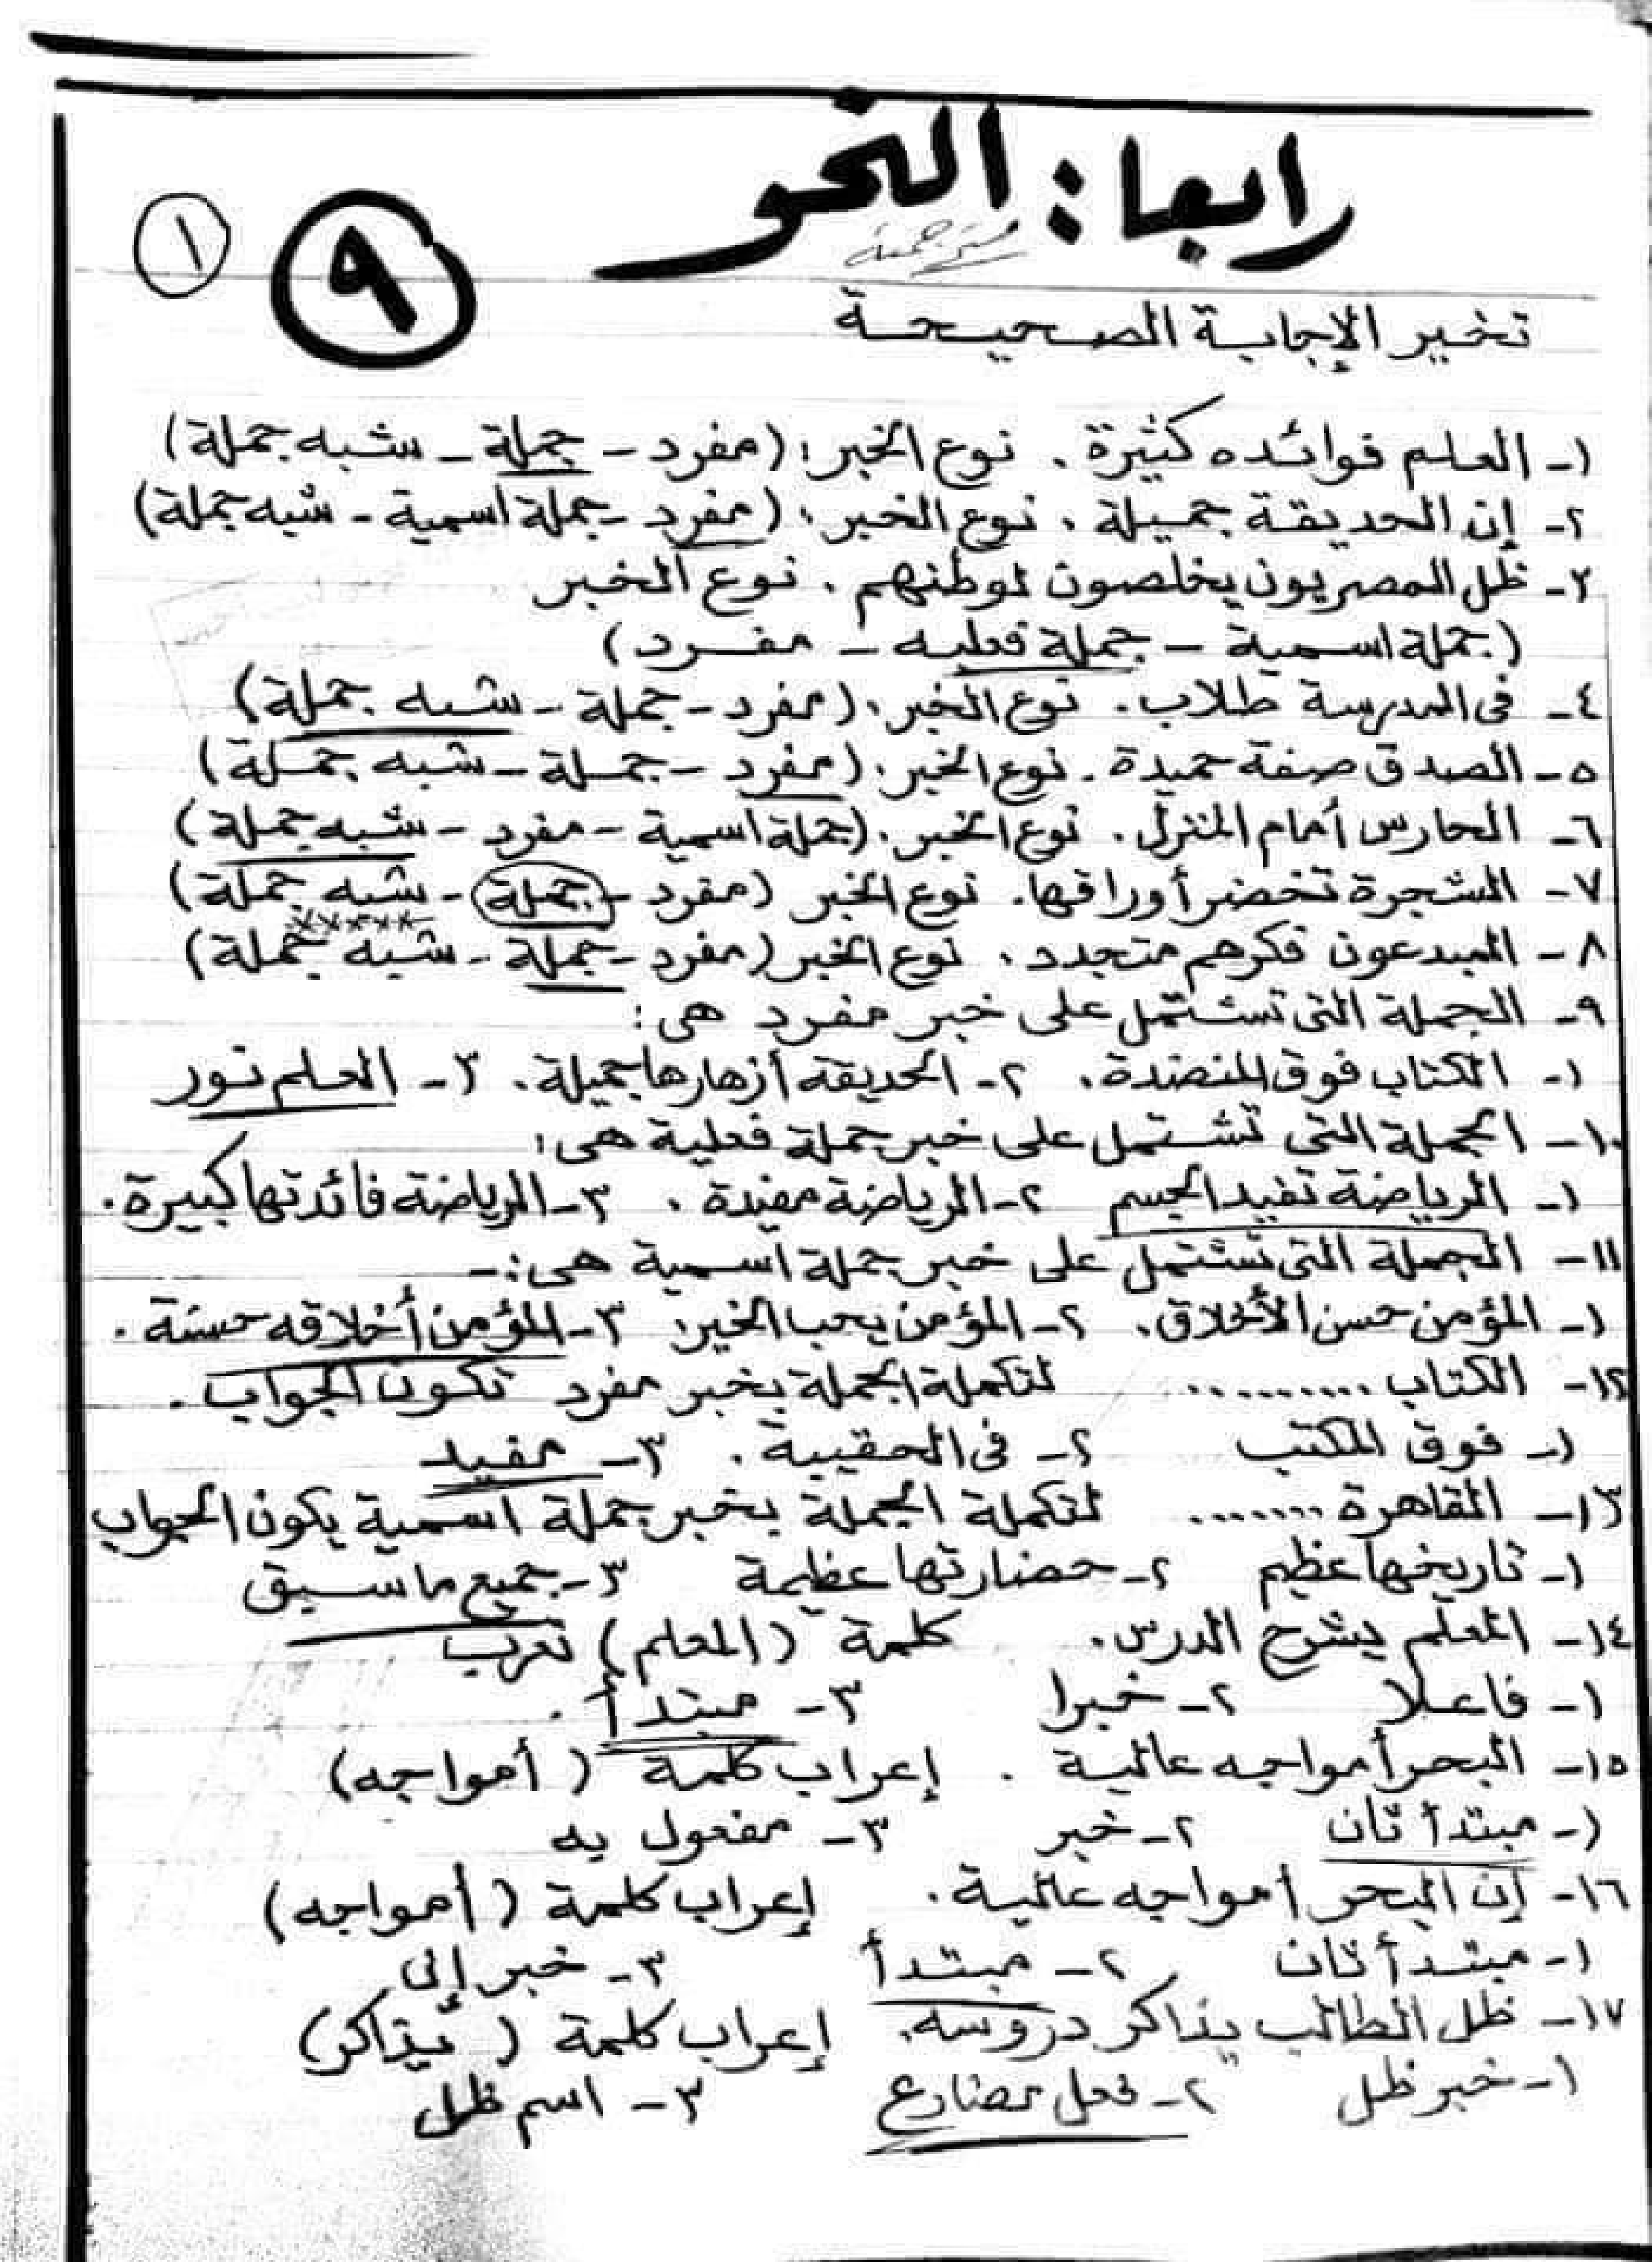 رابعا: النحو
٩
١
تخير الإجابة الصحيحة
١- العلم فوائده كثيرة. نوع الخبر: (مفرد - جملة - شبه جملة)
٢- إن الحديقة جميلة. نوع الخبر: (مفرد - جملة اسمية - شبه جملة)
٣- ظل المصريون يخلصون لوطنهم. نوع الخبر
(جملة اسمية - جملة فعلية - مفرد)
٤- فى المدرسة طلاب. نوع الخبر: (مفرد - جملة - شبه جملة)
٥- الصدق صفة حميدة. نوع الخبر: (مفرد - جملة - شبه جملة)
٦- الحارس أمام المنزل. نوع الخبر: (جملة اسمية - مفرد - شبه جملة)
٧- الشجرة تخضر أوراقها. نوع الخبر (مفرد - جملة - شبه جملة)
٨- المبدعون فكرهم متجدد. نوع الخبر (مفرد - جملة - شبه جملة)
٩- الجملة التى تشتمل على خبر مفرد هى:
١- الكتاب فوق المنضدة. ٢- الحديقة أزهارها جميلة. ٣- العلم نور
١٠- الجملة التى تشتمل على خبر جملة فعلية هى:
١- الرياضة تفيد الجسم ٢- الرياضة مفيدة. ٣- الرياضة فائدتها كبيرة.
١١- الجملة التى تشتمل على خبر جملة اسمية هى:-
١- المؤمن حسن الأخلاق. ٢- المؤمن يحب الخير. ٣- المؤمن أخلاقه حسنة.
١٢- الكتاب .......... لتكملة الجملة بخبر مفرد تكون الجواب.
١- فوق المكتب ٢- فى الحقيبة. ٣- مفيد
١٣- القاهرة ....... لتكملة الجملة بخبر جملة اسمية يكون الجواب
١- تاريخها عظيم ٢- حضارتها عظيمة ٣- جميع ما سبق
١٤- المعلم يشرح الدرس. كلمة (المعلم) تعرب
١- فاعلا ٢- خبرا ٣- مبتدأ.
١٥- البحر أمواجه عالية. إعراب كلمة (أمواجه)
١- مبتدأ ثان ٢- خبر ٣- مفعول به
١٦- إن البحر أمواجه عالية. إعراب كلمة (أمواجه)
١- مبتدأ ثان ٢- مبتدأ ٣- خبر إن
١٧- ظل الطالب يذاكر دروسه. إعراب كلمة (يذاكر)
١- خبر ظل ٢- فعل مضارع ٣- اسم ظل